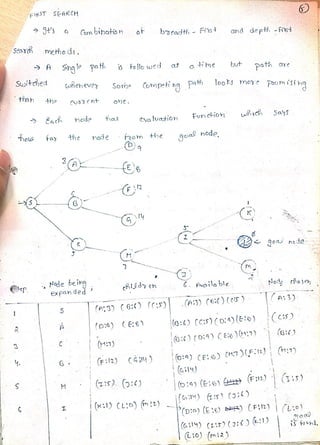 FIRST SEARCH
→ It's a Combination of breadth-First and depth-First
search methods.
→ A Single path is followed at a time but path are
switched whenever Some Competing path looks more promising
than the current one.
→ Each node has evaluation Function which says
how far the node from the goal node.
S
3 A
D 9
E 8
6 B
F 12
G 14
C
5
H
7
5
I
J
6
1
K
L 0
← goal node
M
2
Step Node being expanded children Available Node chosen
1 S (A:3) (B:6) (C:5) (A:3) (B:6) (C:5) (A:3)
2 A (D:9) (E:8) (B:6) (C:5) (D:9) (E:8) (C:5)
3 C (H:7) (B:6) (D:9) (E:8) (H:7) (B:6)
4. B. (F:12) (G:14) (D:9) (E:8) (H:7) (F:12) (H:7)
(G:14)
5 H (I:5) (J:6) (D:9) (E:8) (F:12) (I:5)
(G:14) (I:5) (J:6)
6 I (K:1) (L:0) (M:2) (D:9) (E:8) (F:12) (L:0)
(G:14) (I:5) (J:6) (K:1) goal
(L:0) (M:2) is found.